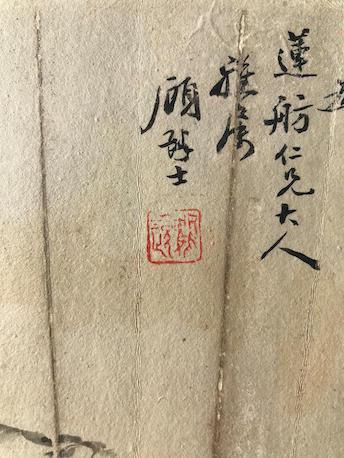 蓮舫仁兄大人
雅属
顧麟士